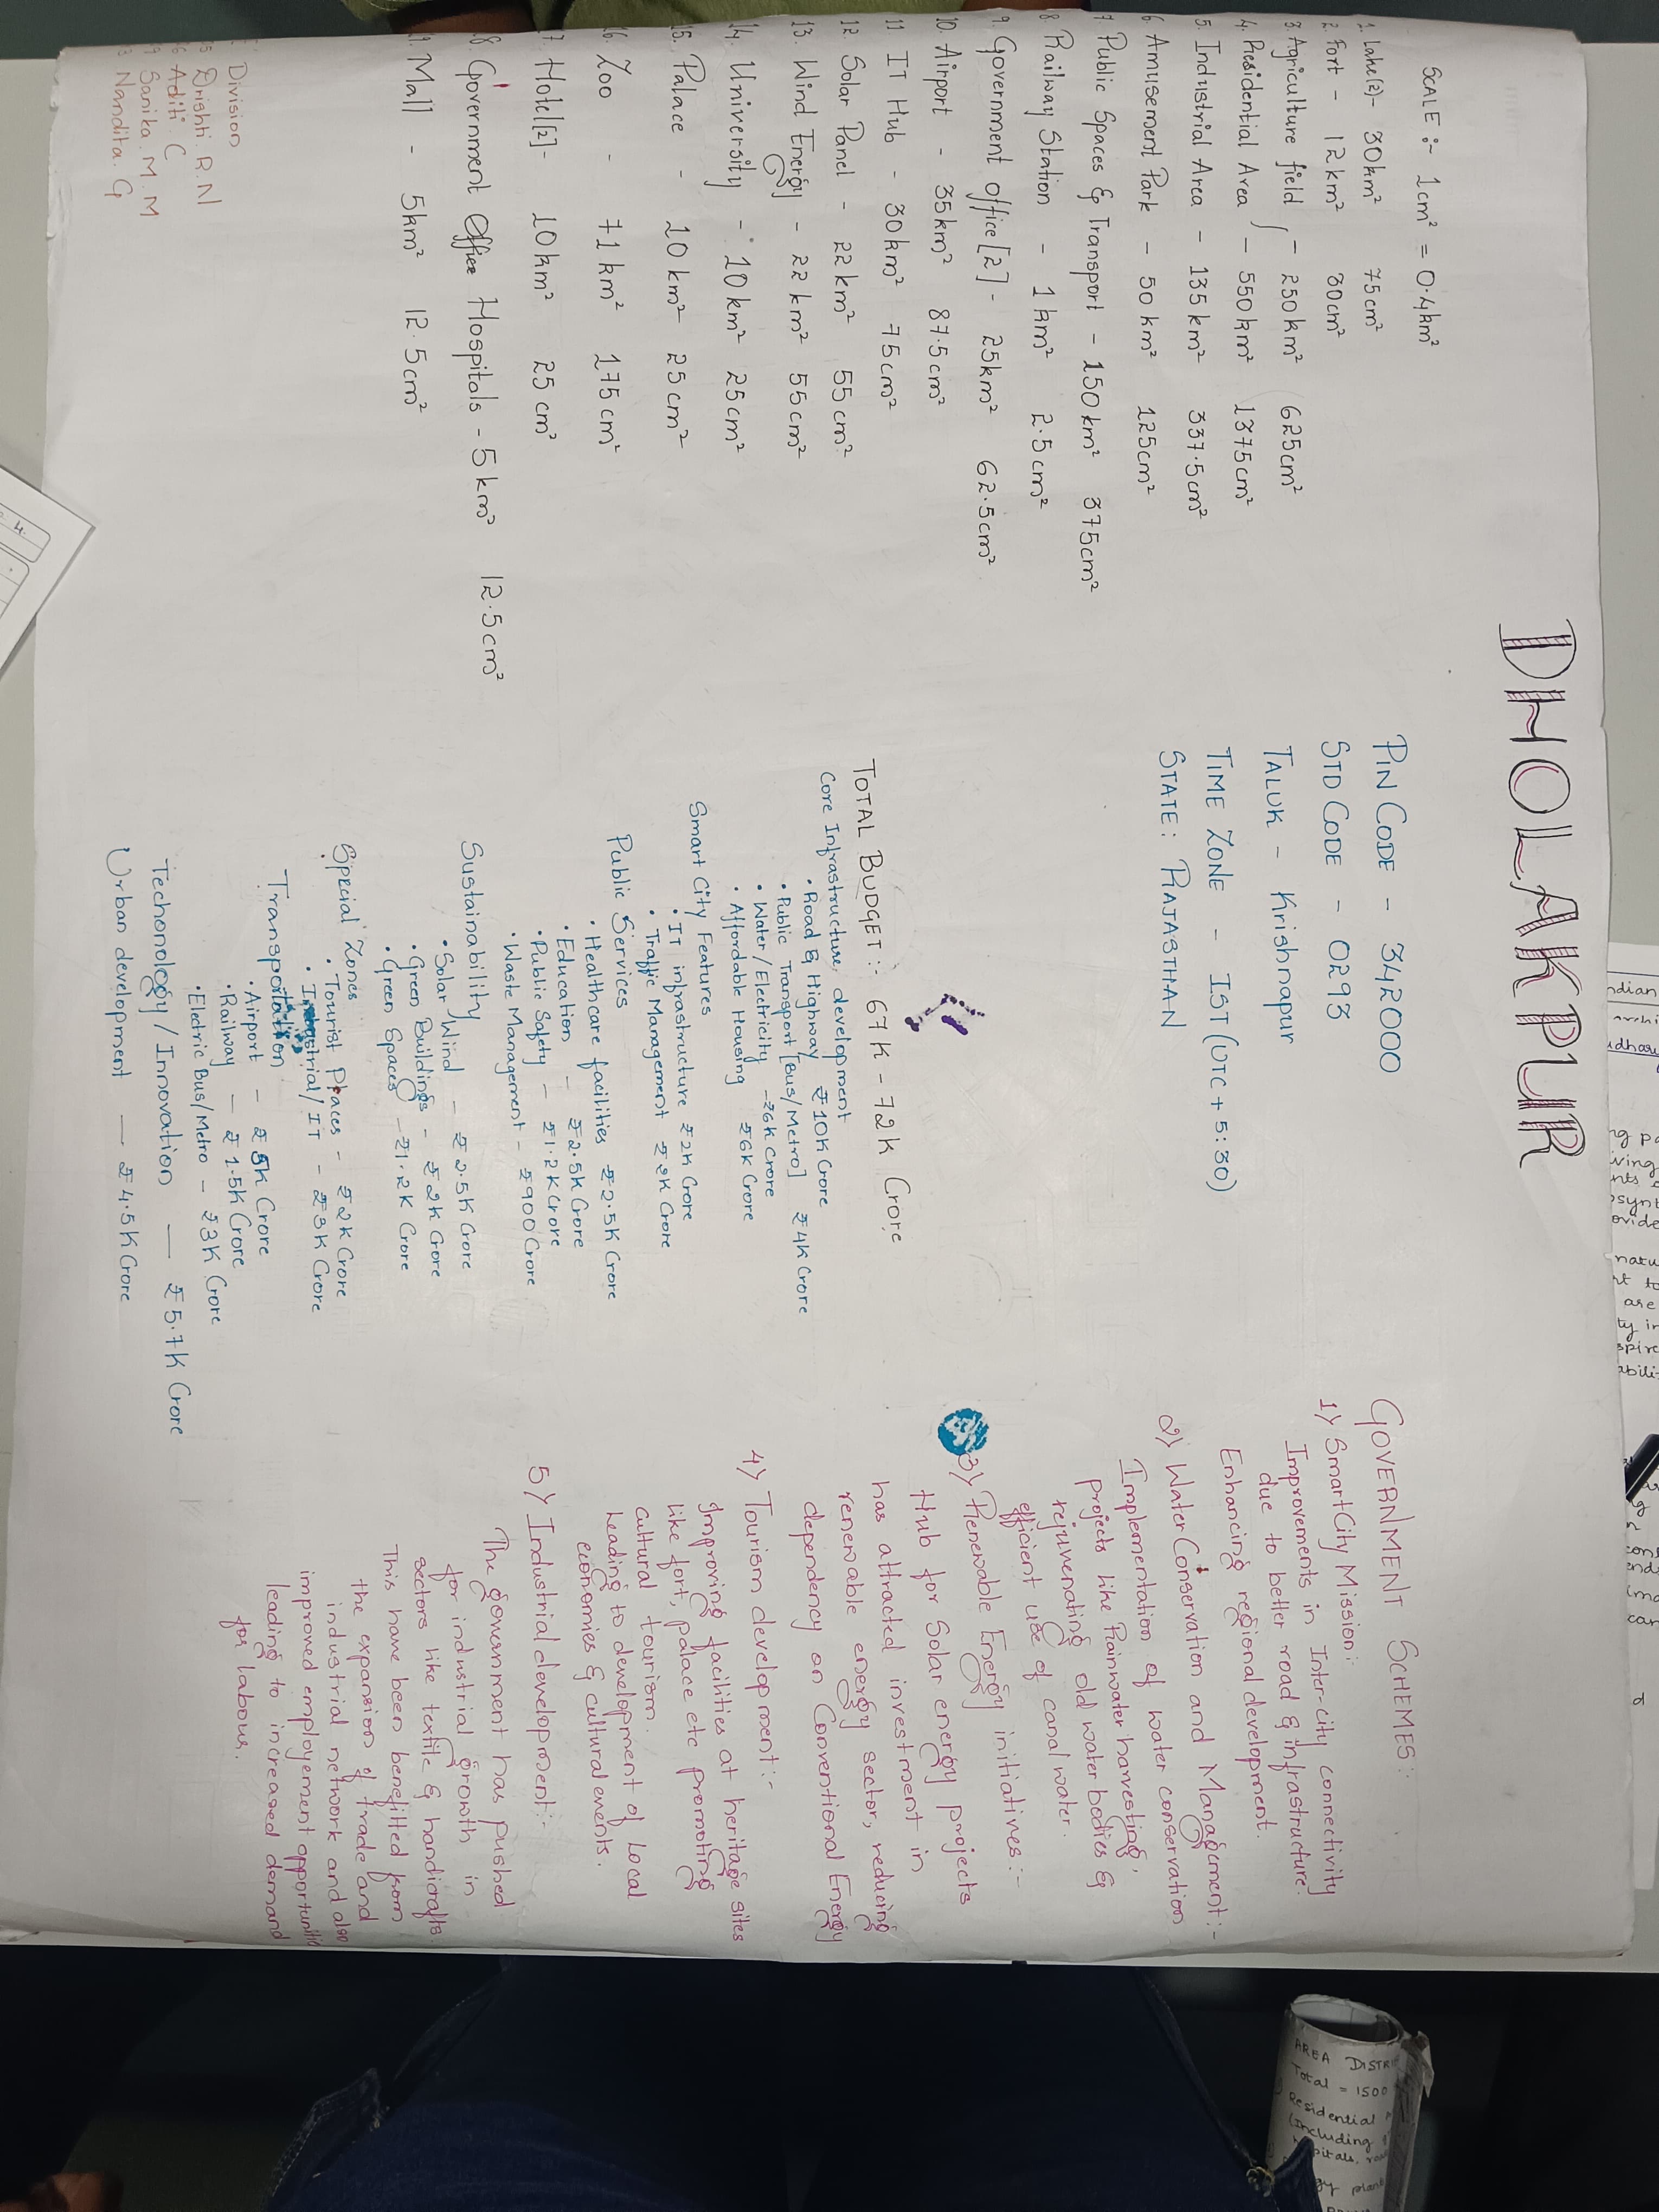 DHOLAKPUR
SCALE :- 1cm² = 0.4km²
1. Lake(2)- 30km² 75cm²
2. Fort - 12km² 30cm²
3. Agriculture field - 250km² 625cm²
4. Residential Area - 550km² 1375cm²
5. Industrial Area - 135km² 337.5cm²
6. Amusement Park - 50 km² 125cm²
7. Public Spaces & Transport - 150km² 375cm²
8. Railway Station - 1 km² 2.5cm²
9. Government office[2] - 25km² 62.5cm²
10. Airport - 35km² 87.5cm²
11. IT Hub - 30km² 75cm²
12. Solar Panel - 22km² 55cm²
13. Wind Energy - 22km² 55cm²
14. University - 10km² 25cm²
15. Palace - 10km² 25cm²
16. Zoo - 71km² 175cm²
17. Hotel[2]- 10km² 25 cm²
8. Government Hospitals - 5km² 12.5cm²
Mall - 5km² 12.5cm²
Division
Drishti. R. N
Aditi. C
Sanika. M. M
Nandita. G
PIN CODE - 342000
STD CODE - 0293
TALUK - Krishnapur
TIME ZONE - IST (UTC + 5:30)
STATE: RAJASTHAN
TOTAL BUDGET :- 67K - 72K Crore
Core Infrastructure development
• Road & Highway ₹10K Crore
• Public Transport [Bus/Metro] ₹4K Crore
• Water/Electricity -₹6K Crore
• Affordable Housing ₹6K Crore
Smart City Features
• IT infrastructure ₹2K Crore
• Traffic Management ₹2K Crore
Public Services
• Healthcare facilities ₹2.5K Crore
• Education - ₹2.5K Crore
• Public Safety - ₹1.2K Crore
• Waste Management - ₹900 Crore
Sustainability
• Solar Wind - ₹2.5K Crore
• Green Buildings - ₹2K Crore
• Green Spaces -₹1.2K Crore
Special Zones
• Tourist Places - ₹2K Crore
• Industrial/IT - ₹3K Crore
Transportation
• Airport - ₹5K Crore
• Railway - ₹1.5K Crore
• Electric Bus/Metro - ₹3K Crore
Techonology/Innovation - ₹5.7K Crore
Urban development - ₹4.5K Crore
GOVERNMENT SCHEMES:-
1) Smart City Mission:-
Improvements in Inter-city connectivity
due to better road & infrastructure.
Enhancing regional development.
2) Water Conservation and Management:-
Implementation of water conservation
projects like Rainwater harvesting,
rejuvenating old water bodies &
efficient use of canal water.
3) Renewable Energy initiatives:-
Hub for Solar energy projects
has attracted investment in
renewable energy sector, reducing
dependency on Conventional Energy
4) Tourism development:-
Improving facilities at heritage sites
like fort, palace etc promoting
cultural tourism.
Leading to development of Local
economies & cultural events.
5) Industrial development:-
The government has pushed
for industrial growth in
sectors like textile & handicrafts.
This have been benefitted from
the expansion of trade and
industrial network and also
improved employement
leading to increased demand
for labour.
AREA DISTRI
Total = 1500
Residential
(Including